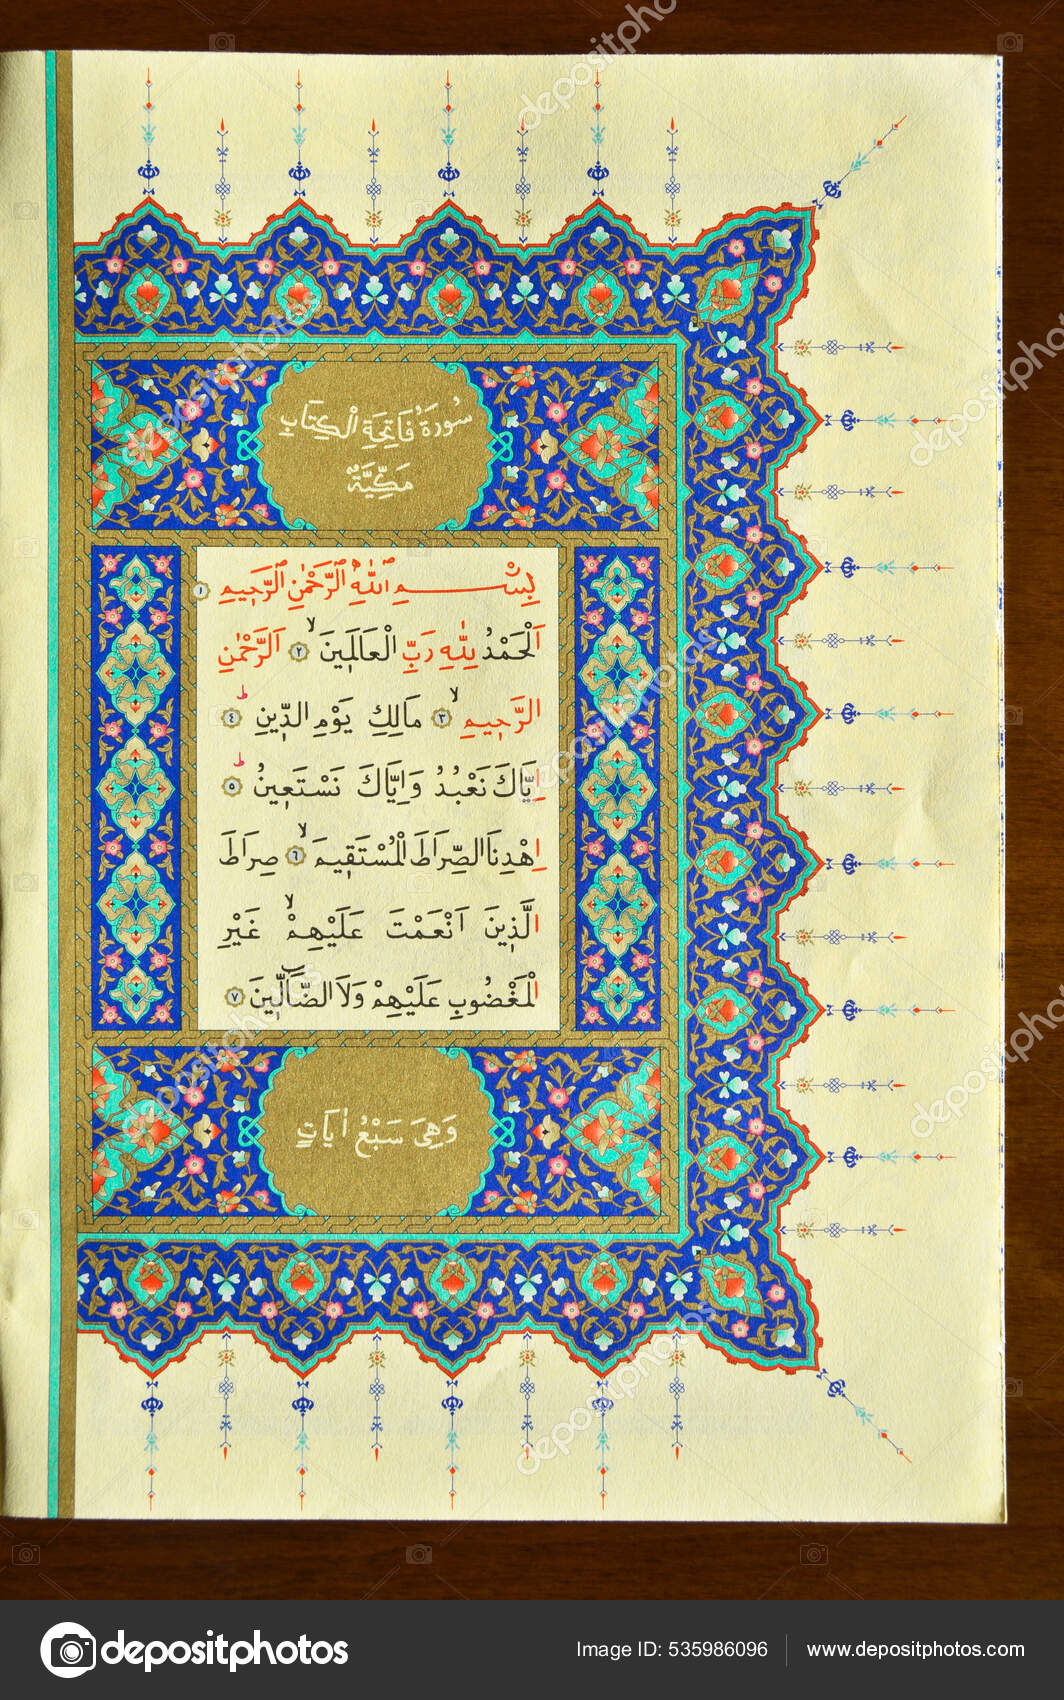 سُورَةُ فَاتِحَةِ الْكِتَابِ
مَكِّيَّةٌ
بِسْمِ اللّٰهِ الرَّحْمٰنِ الرَّحِيمِ ١
اَلْحَمْدُ لِلّٰهِ رَبِّ الْعَالَمِينَ ۙ ٢ اَلرَّحْمٰنِ
الرَّحِيمِ ۙ ٣ مَالِكِ يَوْمِ الدِّينِ ۜ ٤
اِيَّاكَ نَعْبُدُ وَاِيَّاكَ نَسْتَعِينُ ۜ ٥
اِهْدِنَا الصِّرَاطَ الْمُسْتَقِيمَ ۙ ٦ صِرَاطَ
الَّذِينَ اَنْعَمْتَ عَلَيْهِمْ ۙ غَيْرِ
الْمَغْضُوبِ عَلَيْهِمْ وَلَا الضَّٓالِّينَ ٧
وَهِيَ سَبْعُ اٰيَاتٍ
depositphotos
Image ID: 535986096
www.depositphotos.com